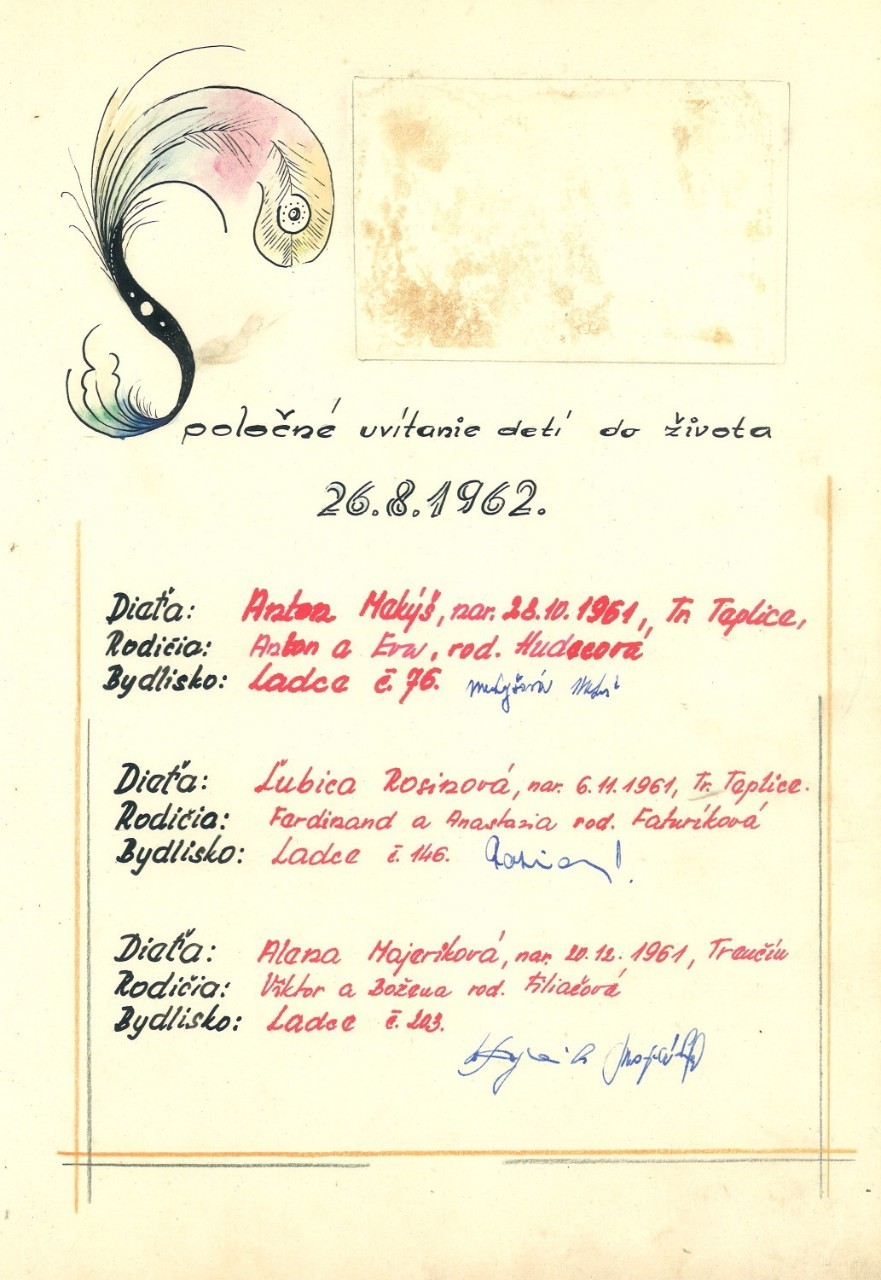 Spoločné uvítanie detí do života
26.8.1962.
Dieťa: Anton Mekýš, nar. 28.10.1961, Tr. Teplice,
Rodičia: Anton a Eva, rod. Hudecová
Bydlisko: Ladce č. 76.
Dieťa: Ľubica Rosinová, nar. 6.11.1961, Tr. Teplice.
Rodičia: Ferdinand a Anastazia rod. Faturíková
Bydlisko: Ladce č. 146.
Dieťa: Alena Majeriková, nar. 20.12.1961, Trenčín
Rodičia: Viktor a Božena rod. Filiačová
Bydlisko: Ladce č. 203.